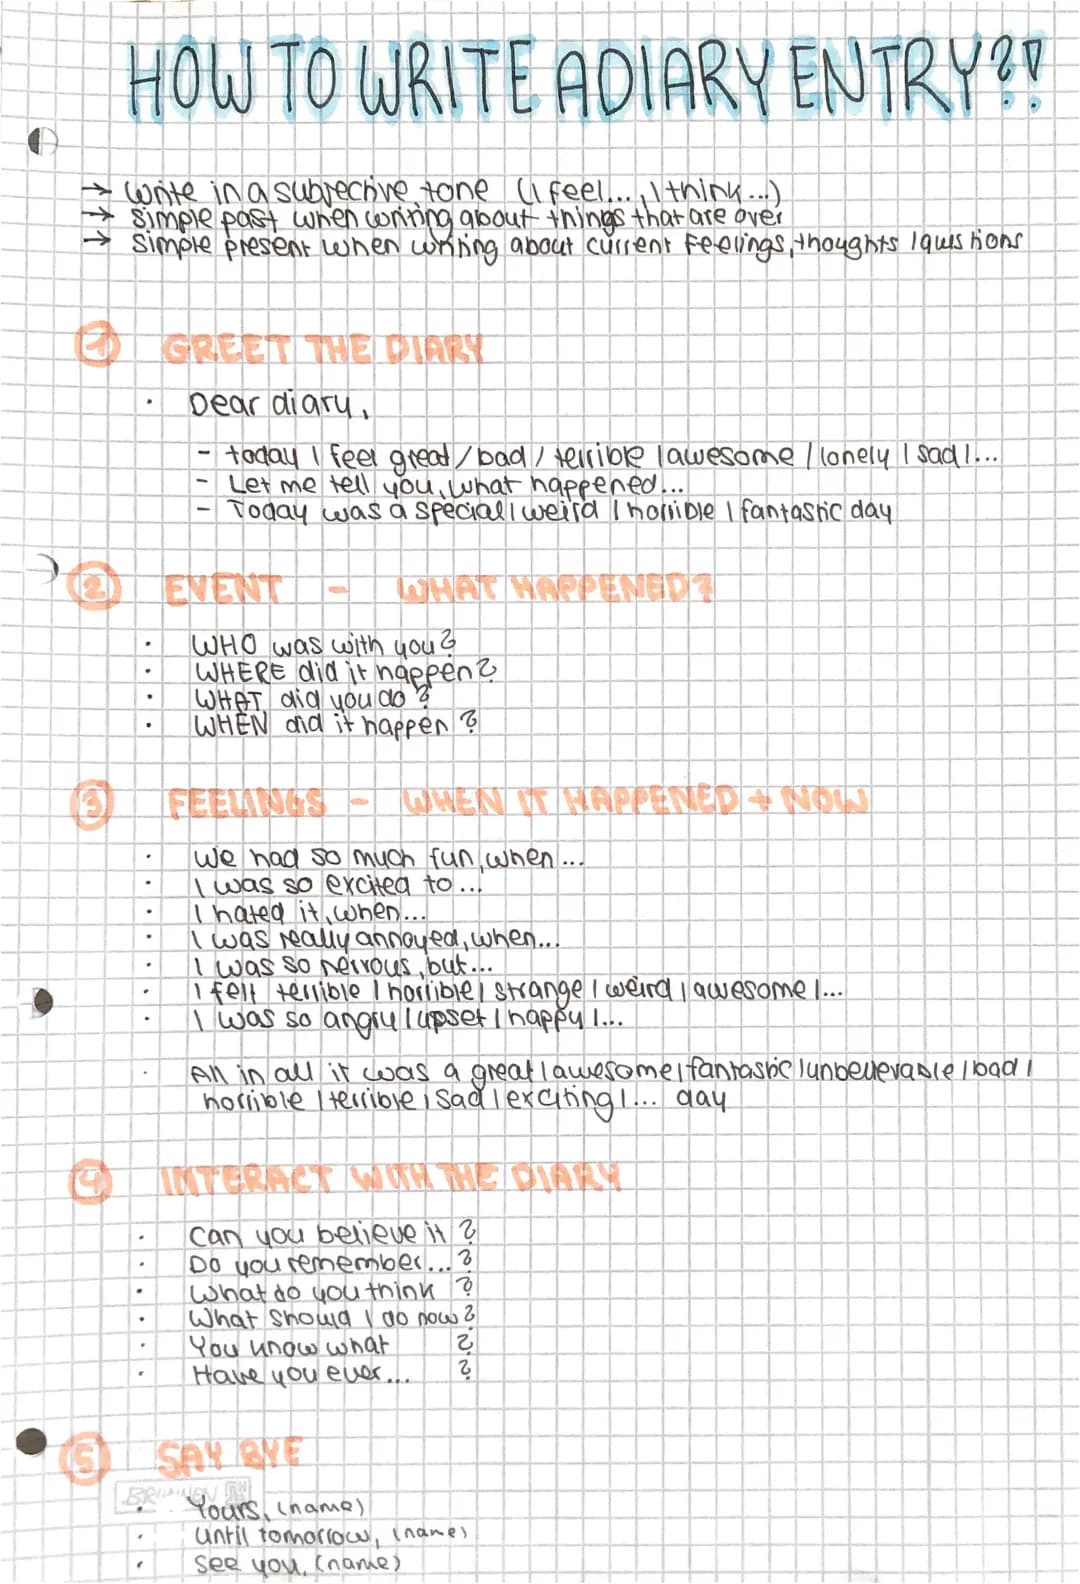 HOW TO WRITE A DIARY ENTRY?!
→ write in a subjective tone (I feel..., I think...)
→ simple past when writing about things that are over
→ Simple present when writing about current feelings, thoughts / questions
1 GREET THE DIARY
· Dear diary,
- today I feel great / bad / terrible / awesome / lonely / sad /...
- Let me tell you, what happened...
- Today was a special / weird / horrible / fantastic day
2 EVENT - WHAT HAPPENED?
· WHO was with you?
· WHERE did it happen?
· WHAT did you do?
· WHEN did it happen?
3 FEELINGS - WHEN IT HAPPENED + NOW
· We had so much fun, when...
· I was so excited to...
· I hated it, when...
· I was really annoyed, when...
· I was so nervous, but...
· I felt terrible / horrible / strange / weird / awesome /...
· I was so angry / upset / happy /...
· All in all it was a great / awesome / fantastic / unbelievable / bad /
horrible / terrible / sad / exciting /... day
4 INTERACT WITH THE DIARY
· Can you believe it?
· Do you remember...?
· What do you think?
· What should I do now?
· You know what?
· Have you ever...?
5 SAY BYE
· Yours, (name)
· Until tomorrow, (name)
· See you, (name)